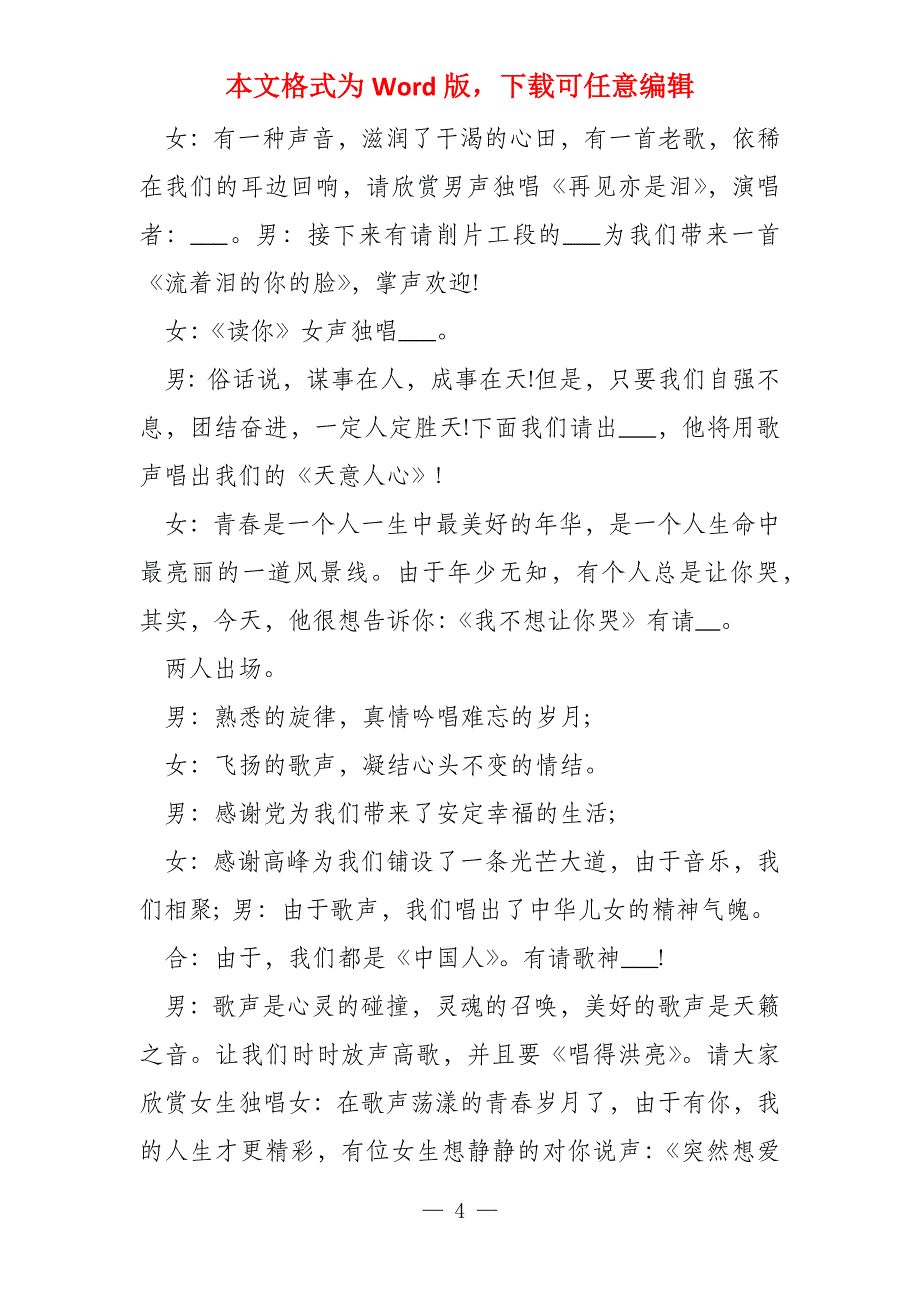 本文格式为 Word 版，下载可任意编辑
女：有一种声音，滋润了干渴的心田，有一首老歌，依稀
在我们的耳边回响，请欣赏男声独唱《再见亦是泪》，演唱
者：___。男：接下来有请削片工段的___为我们带来一首
《流着泪的你的脸》，掌声欢迎!
女：《读你》女声独唱___。
男：俗话说，谋事在人，成事在天!但是，只要我们自强不
息，团结奋进，一定人定胜天!下面我们请出___，他将用歌
声唱出我们的《天意人心》!
女：青春是一个人一生中最美好的年华，是一个人生命中
最亮丽的一道风景线。由于年少无知，有个人总是让你哭，
其实，今天，他很想告诉你：《我不想让你哭》有请__。
两人出场。
男：熟悉的旋律，真情吟唱难忘的岁月;
女：飞扬的歌声，凝结心头不变的情结。
男：感谢党为我们带来了安定幸福的生活;
女：感谢高峰为我们铺设了一条光芒大道，由于音乐，我
们相聚; 男：由于歌声，我们唱出了中华儿女的精神气魄。
合：由于，我们都是《中国人》。有请歌神___!
男：歌声是心灵的碰撞，灵魂的召唤，美好的歌声是天籁
之音。让我们时时放声高歌，并且要《唱得洪亮》。请大家
欣赏女生独唱女：在歌声荡漾的青春岁月了，由于有你，我
的人生才更精彩，有位女生想静静的对你说声：《突然想爱
— 4 —